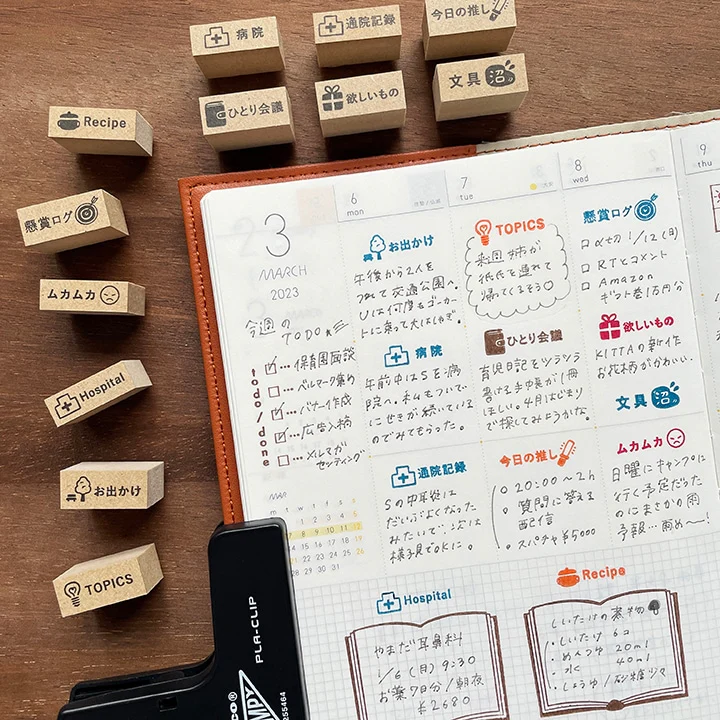 病院
通院記録
今日の推し
ひとり会議
欲しいもの
文具沼
Recipe
懸賞ログ
ムカムカ
Hospital
お出かけ
TOPICS
3
MARCH
2023
6
mon
7
tue
8
wed
9
thu
今週の
TODO
todo/done
…保育園面談
…ベルマーク集め
…バナー作成
…広告入稿
…メルマガ
セッティング
お出かけ
午後から2人を
つれて交通公園へ。
Uは何度もゴーカー
トに乗って大はしゃぎ。
TOPICS
来週 姉が
帰ってくるそう
懸賞ログ
〆切 1/12(日)
RTとコメント
Amazon
ギフト券1万円分
病院
午前中はSを病
院へ。私もついで
にせきが続いている
のでみてもらった。
ひとり会議
育児日記をツラツラ
書ける手帳が1冊
ほしい。4月はじまり
で探してみようかな。
欲しいもの
KITTAの新作
お花柄がかわいい。
文具沼
通院記録
Sの中耳炎は
だいぶよくなった
みたいで、次は
様子見でOKに。
今日の推し
20:00〜2h
質問に答える
配信
スパチャ¥5000
ムカムカ
日曜にキャンプに
行く予定だった
のにまさかの雨
予報…雨め〜!
MAR
m t w t f s s
Hospital
やまだ耳鼻科
1/6(月)9:30
お薬7日分/朝夜
¥2680
Recipe
しいたけの煮物
しいたけ 6コ
めんつゆ 20ml
水 40ml
しょうゆ/砂糖少々
PLA-CLIP
255464